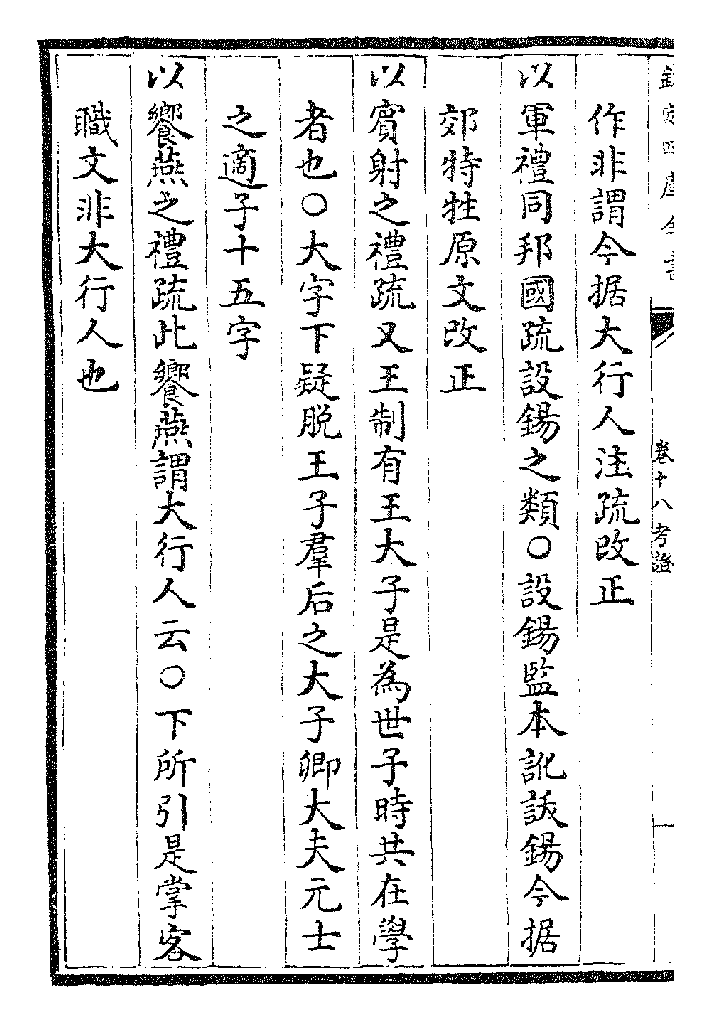 欽定四庫全書
卷十八考證
作非謂今据大行人注疏改正
以軍禮同邦國疏設錫之類○設錫監本訛䛑錫今据
郊特牲原文改正
以賓射之禮疏又王制有王大子是為世子時共在學
者也○大字下疑脱王子羣后之大子卿大夫元士
之適子十五字
以饗燕之禮疏此饗燕謂大行人云○下所引是掌客
職文非大行人也